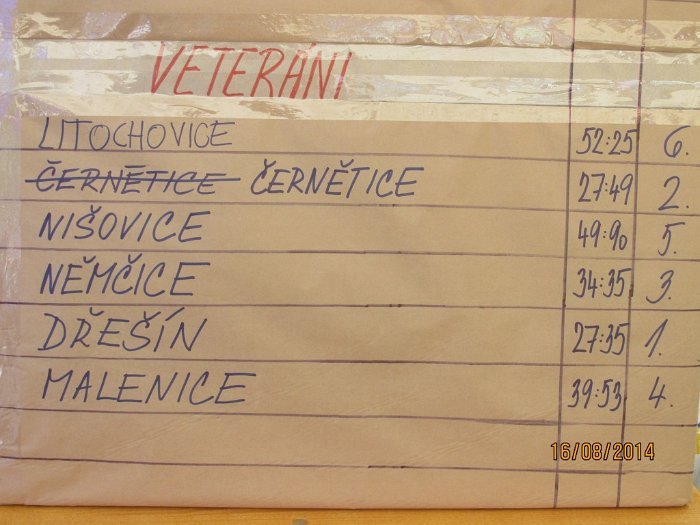 VETERÁNI
LITOCHOVICE 52:25 6.
ČERNĚTICE ČERNĚTICE 27:49 2.
NIŠOVICE 49:90 5.
NĚMČICE 34:35 3.
DŘEŠÍN 27:35 1.
MALENICE 39:53 4.
16/08/2014